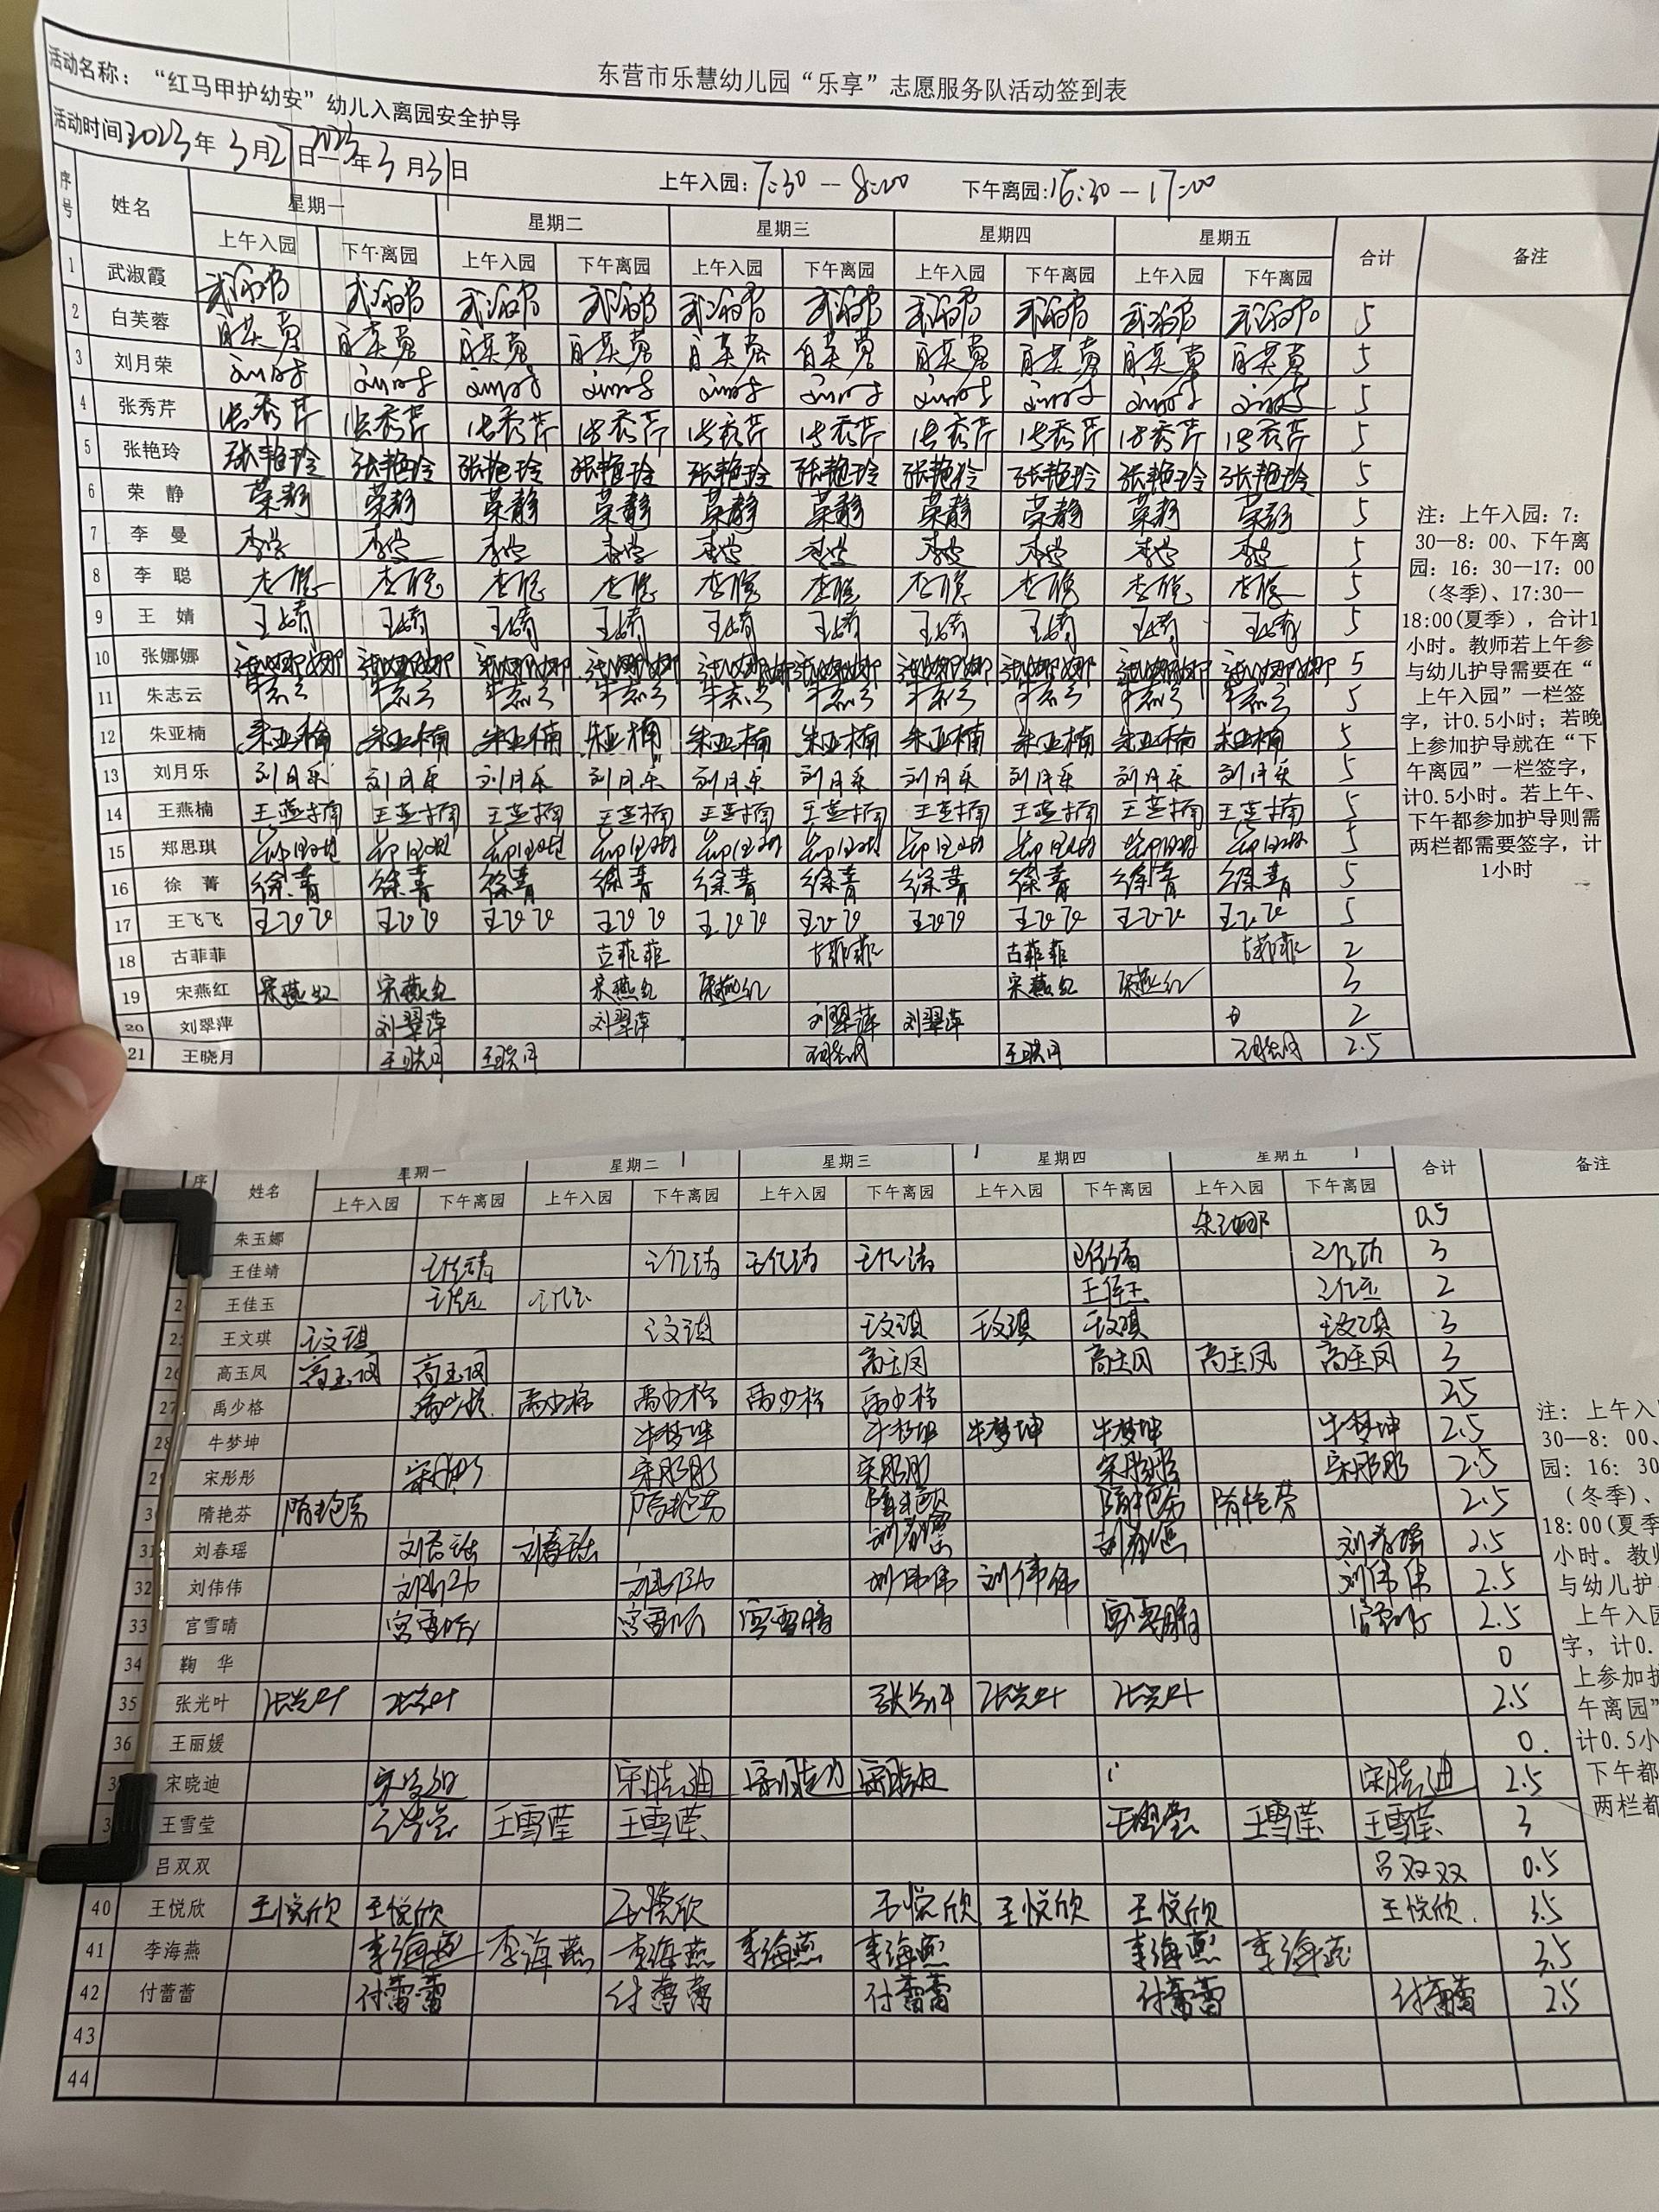 东营市乐慧幼儿园“乐享”志愿服务队活动签到表
活动名称：“红马甲护幼安”幼儿入离园安全护导
活动时间2023年3月27日—2023年3月31日 上午入园：7:30--8:00 下午离园：16:30--17:00
序号 姓名 星期一 星期二 星期三 星期四 星期五 合计 备注
上午入园 下午离园 上午入园 下午离园 上午入园 下午离园 上午入园 下午离园 上午入园 下午离园
1 武淑霞 5
2 白芙蓉 5
3 刘月荣 5
4 张秀芹 张秀芹 张秀芹 张秀芹 张秀芹 张秀芹 张秀芹 张秀芹 张秀芹 张秀芹 张秀芹 5
5 张艳玲 张艳玲 张艳玲 张艳玲 张艳玲 张艳玲 张艳玲 张艳玲 张艳玲 张艳玲 张艳玲 5
6 荣静 荣静 荣静 荣静 荣静 荣静 荣静 荣静 荣静 荣静 荣静 5
7 李曼 5
8 李聪 李聪 李聪 李聪 李聪 李聪 李聪 李聪 李聪 李聪 李聪 5
9 王婧 王婧 王婧 王婧 王婧 王婧 王婧 王婧 王婧 王婧 王婧 5
10 张娜娜 张娜娜 张娜娜 张娜娜 张娜娜 张娜娜 张娜娜 张娜娜 张娜娜 张娜娜 张娜娜 5
11 朱志云 朱志云 朱志云 朱志云 朱志云 朱志云 朱志云 朱志云 朱志云 朱志云 朱志云 5
12 朱亚楠 朱亚楠 朱亚楠 朱亚楠 朱亚楠 朱亚楠 朱亚楠 朱亚楠 朱亚楠 朱亚楠 朱亚楠 5
13 刘月乐 刘月乐 刘月乐 刘月乐 刘月乐 刘月乐 刘月乐 刘月乐 刘月乐 刘月乐 刘月乐 5
14 王燕楠 王燕楠 王燕楠 王燕楠 王燕楠 王燕楠 王燕楠 王燕楠 王燕楠 王燕楠 王燕楠 5
15 郑思琪 5
16 徐菁 徐菁 徐菁 徐菁 徐菁 徐菁 徐菁 徐菁 徐菁 徐菁 徐菁 5
17 王飞飞 王飞飞 王飞飞 王飞飞 王飞飞 王飞飞 王飞飞 王飞飞 王飞飞 王飞飞 王飞飞 5
18 古菲菲 古菲菲 古菲菲 古菲菲 古菲菲 2
19 宋燕红 宋燕红 宋燕红 宋燕红 宋燕红 宋燕红 宋燕红 3
20 刘翠萍 刘翠萍 刘翠萍 刘翠萍 刘翠萍 2
21 王晓月 王晓月 王晓月 王晓月 王晓月 王晓月 2.5
注：上午入园：7：
30—8：00、下午离
园：16：30—17：00
（冬季）、17:30—
18:00(夏季），合计1
小时。教师若上午参
与幼儿护导需要在“
上午入园”一栏签
字，计0.5小时；若晚
上参加护导就在“下
午离园”一栏签字，
计0.5小时。若上午、
下午都参加护导则需
两栏都需要签字，计
1小时
序 姓名 星期一 星期二 星期三 星期四 星期五 合计 备注
上午入园 下午离园 上午入园 下午离园 上午入园 下午离园 上午入园 下午离园 上午入园 下午离园
朱玉娜 朱玉娜 0.5
王佳靖 王佳靖 王佳靖 王佳靖 王佳靖 王佳靖 王佳靖 3
2 王佳玉 王佳玉 王佳玉 王佳玉 王佳玉 2
25 王文琪 王文琪 王文琪 王文琪 王文琪 王文琪 王文琪 3
26 高玉凤 高玉凤 高玉凤 高玉凤 高玉凤 高玉凤 高玉凤 3
27 禹少格 禹少格 禹少格 禹少格 禹少格 禹少格 2.5
28 牛梦坤 牛梦坤 牛梦坤 牛梦坤 牛梦坤 牛梦坤 2.5
29 宋彤彤 宋彤彤 宋彤彤 宋彤彤 宋彤彤 宋彤彤 2.5
30 隋艳芬 隋艳芬 隋艳芬 隋艳芬 隋艳芬 隋艳芬 2.5
31 刘春瑶 刘春瑶 刘春瑶 刘春瑶 刘春瑶 刘春瑶 2.5
32 刘伟伟 刘伟伟 刘伟伟 刘伟伟 刘伟伟 刘伟伟 2.5
33 宫雪晴 宫雪晴 宫雪晴 宫雪晴 宫雪晴 宫雪晴 2.5
34 鞠华 0
35 张光叶 张光叶 张光叶 张光叶 张光叶 张光叶 2.5
36 王丽媛 0.
3 宋晓迪 宋晓迪 宋晓迪 宋晓迪 宋晓迪 宋晓迪 2.5
3 王雪莹 王雪莹 王雪莹 王雪莹 王雪莹 王雪莹 王雪莹 3
吕双双 吕双双 0.5
40 王悦欣 王悦欣 王悦欣 王悦欣 王悦欣 王悦欣 王悦欣 王悦欣. 3.5
41 李海燕 李海燕 李海燕 李海燕 李海燕 李海燕 李海燕 李海燕 3.5
42 付蕾蕾 付蕾蕾 付蕾蕾 付蕾蕾 付蕾蕾 付蕾蕾 2.5
43
44
注：上午入
30—8：00、
园：16：30
（冬季）、
18:00(夏季
小时。教师
与幼儿护
上午入园
字，计0.
上参加护
午离园”
计0.5小
下午都
两栏都